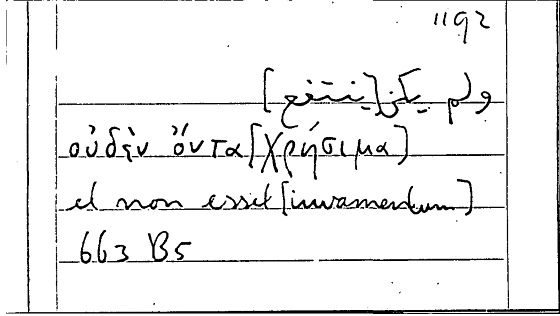 1192
ولم يكن [ينتفع]
οὐδὲν ὄντα [χρήσιμα]
et non esset [iuvamentum]
663 B5